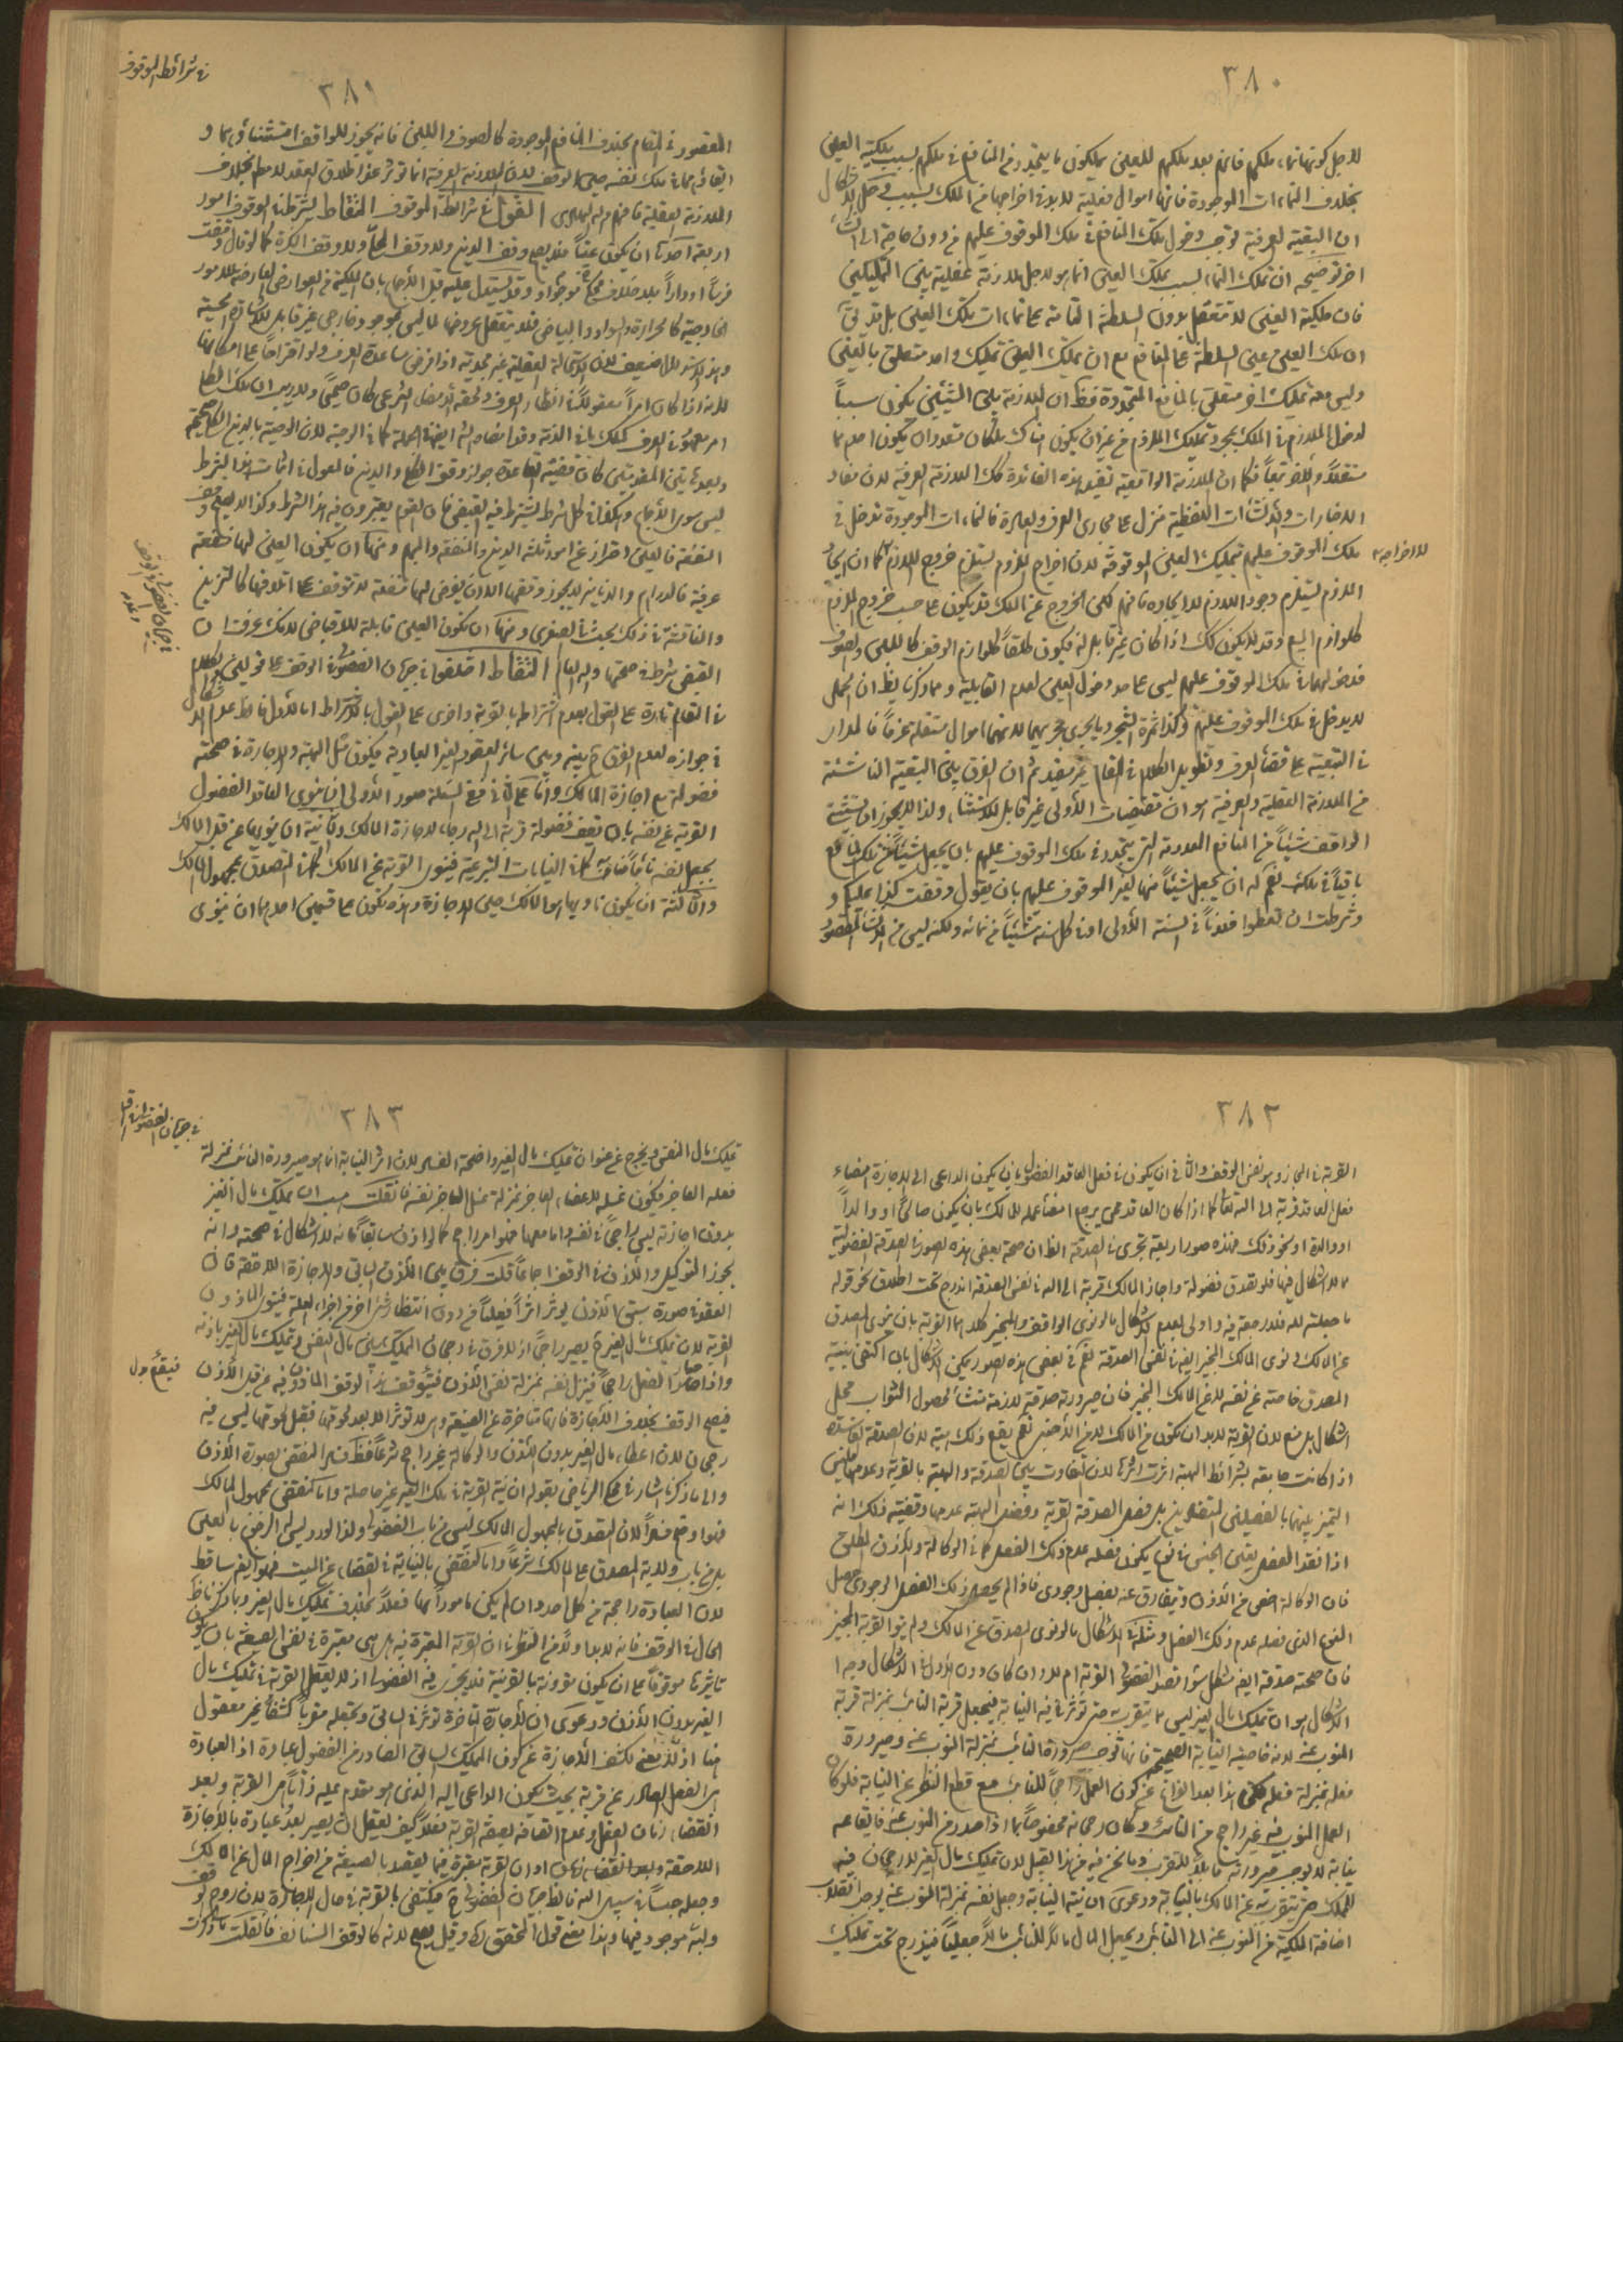 ٣٨٠
لاجل كونها نماء ملكهم فانهم بعد ملكهم للعين يملكون ما يتجدد من المنافع في ملكهم بسبب ملكية العين
بخلاف النماءات الموجودة فانها اموال فعلية لا بد في اخراجها من الملك بسبب وحل الاشكال
ان التبعية العرفية توجب دخول تلك المنافع في ملك الموقوف عليهم من دون حاجة الى انشاء
اخر توضيحه ان تملك النماء بسبب تملك العين انما هو لاجل ملازمة عقلية بين التمليكين
فان ملكية العين لا تتعقل بدون السلطنة التامة على نماءات تلك العين بل قد يقال
ان ملك العين عين السلطنة على المنافع مع ان تمليك العين تمليك واحد متعلق بالعين
وليس معه تمليك اخر متعلق بالمنافع المتجددة فظهر ان الملازمة بين الشيئين يكون سبباً
لدخول الملازم في الملك بمجرد تمليك الملزوم من غير ان يكون هناك ملكان متعددان يكون احدهما
مستقلاً والاخر تبعاً فكما ان الملازمة الواقعية تفيد هذه الفائدة كذلك الملازمة العرفية لان مفاد
الاخبارات والانشاءات اللفظية منزل على مجارى العرف والعادة فالنماءات الموجودة تدخل في
ملك الموقوف عليهم بتمليك العين الموقوفة لان اخراج الملزوم يستلزم خروج اللازم كما ان ايجاد
لا اخراجه
الملزوم يستلزم وجود اللازم لا ايجاده فافهم لكن الخروج عن الملك قد يكون على حسب خروج الملزوم
كلوازم البيع وقد لا يكون كذلك اذا كان غير قابل له فيكون طلقاً كلوازم الوقف كاللبن والصوف
فدخولهما في ملك الموقوف عليهم ليس على حد دخول العين لعدم القابلية ومما ذكرنا يظهر ان الحمل
لا يدخل في ملك الموقوف عليهم وكذا ثمرة الشجر وما يجرى مجريهما لانهما اموال مستقلة عرفاً فالمدار
في التبعية على قضاء العرف وتطويل الكلام في المقام غير مفيد ثم ان الفرق بين التبعية الناشئة
من الملازمة العقلية والعرفية هو ان مقتضيات الاولى غير قابل للاستثناء ولذا لا يجوز ان يستثنى
الواقف شيئاً من المنافع المعدومة التي يتجدد في ملك الموقوف عليهم بان يجعل شيئاً من تلك المنافع
باقياً في ملكه نعم له ان يجعل شيئاً منها لغير الموقوف عليهم بان يقول وقفت كذا عليكم و
شرطت ان تعطوا فلاناً في السنة الاولى او في كل سنة شيئاً من نمائه ولكنه ليس من الاستثناء المقصود
٣٨١
في شرائط الموقوف
المقصود في المقام بخلاف المنافع الموجودة كالصوف واللبن فانه يجوز للواقف استثنائهما و
ابقائهما في ملك نفسه حين الوقف لان الملازمة العرفية انما تؤثر عند اطلاق العقد لا مطلقا بخلاف
الملازمة العقلية فافهم والله الهادى القول في شرائط الموقوف التقاط يشترط في الموقوف امور
اربعة احدها ان يكون عيناً فلا يصح وقف الدين ولا وقف الكلى ولا وقف الكرة كما لو قال وقفت
فرساً او داراً بلا خلاف
الخارجية كالحرارة والسواد والبياض فلا يتعقل عروضها لما ليس بموجود خارجى غير قابل للاشارة الحسية
لانه اذا كان امراً معقولاً في انظار العرف ولحقه الامضاء الشرعى كان صحيحاً ولا ريب ان ملك الكلى
وبعد هاتين المقدمتين كان مقتضى القاعدة جواز وقف الكلى والدين فالمعول في اثبات هذا الشرط
ليس سوى الاجماع
المنفعة فالعين احتراز عن امور ثلثة الدين والمنفعة والمبهم ومنها ان يكون العين لها منفعة
عرفية فالدراهم والدنانير لا يجوز وقفها الا ان يفرض لها منفعة لا تتوقف على اتلافها كالتزيين
والمناقشة في ذلك بحث في الصغرى ومنها ان يكون العين قابلة للاقباض لانك عرفت ان
القبض شرط في صحتها والله العالم التقاط اختلفوا في جريان الفضولى في الوقف على قولين والكلام
في المقام تارة على القول بعدم اشتراط القربة واخرى على القول بالاشتراط اما الاول فالظاهر عدم الاشكال
في جوازه لعدم الفرق بينه وبين سائر العقود الغير العبادية فيكون مثل الهبة والاجارة في صحته
فضولة مع اجازة المالك واما على الثانى ففى المسئلة صور الاولى ان ينوى العاقد الفضول
القربة عن نفسه بان يقف فضولة قربة الى الله رجاء لاجازة المالك والثانية ان ينويها عن قبل المالك
بجعل نفسه نائباً منابه كما في النيابات الشرعية فينوى القربة عن المالك كما في التصدق بمجهول المالك
والثالثة ان يكون ناويها هو المالك حين الاجازة وهذه تكون على قسمين احدهما ان ينوى
في جريان الفضولى في الوقف وعدمه
٣٨٢
القربة في المجاز وهو نفس الوقف والثانى ان يكون في فعل العاقد الفضولى بان يكون الداعى الى الاجازة امضاء
فعل العاقد قربة الى الله تعالى كما اذا كان العاقد ممن يرجح امضاء عمله للمالك بان يكون صالحاً او والداً
او والدة او نحو ذلك فهذه صور اربعة تجرى في الصدقة الظاهر ان صحة بعض هذه الصور في الصدقة الفضولية
مما لا اشكال فيها فلو تصدق فضولة واجاز المالك قربة الى الله في نفس الصدقة اندرج تحت اطلاق نحو قوله
ما جعلته لله فلا رجعة فيه واولى بعدم الاشكال ما لو نوى الواقف والمجيز كلاهما القربة بان ينوى المصدق
عن المالك ونوى المالك المجيز ايضا في نفس الصدقة نعم في بعض هذه الصور يمكن الاشكال بان اكتفى بنية
المصدق خاصة عن نفسه لا عن المالك المجيز فان صيرورته صدقة لازمة منشأ لحصول الثواب محل
اشكال بل منع لان القربة لا بد ان تكون من المالك لا من الاجنبى نعم يقع ذلك هبة لان الصدقة الفاسدة
اذا كانت جامعة بشرائط الهبة اثرت اثرها لان التفاوت بين الصدقة والهبة بالقربة وعدمها فليس
التميز بينهما بالفصلين المتضادين بل فصل الصدقة القربة وفصل الهبة عدمها وقضية ذلك انه
اذا فقد الفصل بقى الجنس في نوع يكون فصله عدم ذلك الفصل كما في الوكالة والاذن المطلق
فان الوكالة اخص من الاذن وتفارق عنه بفصل وجودى فاذا لم يحصل ذلك الفصل الوجودى حصل
النوع الذى فصله عدم ذلك الفصل ومثله في الاشكال ما لو نوى المصدق عن المالك ولم ينو القربة المجيز
فان صحته صدقة ايضا مشكل سواء قصد الفضولى القربة ام لا وان كان دون الاول في الاشكال وجه
الاشكال هو ان تمليك مال الغير ليس مما يتقرب به حتى تؤثر فيه النيابة فيجعل قربة النائب بمنزلة قربة
المنوب عنه لان خاصية النيابة الصحيحة انها توجب صيرورة النائب بمنزلة المنوب عنه وصيرورة
فعله بمنزلة فعله لكن هذا بعد الفراغ عن كون العمل راجحاً للنائب مع قطع النظر عن النيابة فلو كان
العمل المنوب فيه غير راجح من النائب وكان رجحانه مخصوصاً بما اذا صدر من المنوب عنه فايقاعه
نيابة لا يوجب صيرورته قابلاً للتقرب وما نحن فيه من هذا القبيل لان تمليك مال الغير لا رجحان فيه
للمملك حتى يتقرب به عن المالك بالنيابة ودعوى ان نية النيابة وجعل نفسه بمنزلة المنوب عنه يوجب انقلاب
اضافة الملكية من المنوب عنه الى النائب ويجعل المال مالاً للنائب مالاً جعلياً فيندرج تحت تمليك
٣٨٣
في جريان الفضولى في الوقف
تمليك مال النفس ويخرج عن عنوان تمليك مال الغير واضحة الفساد لان اثر النيابة انما هو صيرورة النائب بمنزلة
بدون اجازته ليس راجحاً في نفسه واما معها فهو امر راجح كما لو اذن سابقاً فانه لا اشكال في صحته وانه
يجوز التوكيل والاذن في الوقف اجماعاً قلت فرق بين الاذن السابق والاجازة اللاحقة فان
العقد في صورة سبق الاذن يؤثر اثراً فعلياً من دون انتظار شىء اخر من اجزاء العلة فينوى الماذون
القربة لان تمليك مال الغير ح يصير راجحاً اذ لا فرق في رجحان التمليك بين مال النفس وتمليك مال الغير باذنه
واذا صار الفعل راجحاً فينزل نفسه بمنزلة نفس الاذن فيتوقف هذا الوقف الماذون فيه عن قبل الاذن
فيصح الوقف بخلاف الاجازة فانها متاخرة عن الصيغة وهى لا تؤثر الا بعد لحوقها فقبل لحوقها ليس فيه
رجحان لان اعطاء مال الغير بدون الاذن والوكالة غير راجح شرعاً فظهر فساد النقض بصورة الاذن
والى ما ذكرنا اشار في محكى الرياض بقوله ان نية القربة في ملك الغير غير حاصلة واما النقض بمجهول المالك
فهو اوضح فساداً لان التصدق بالمجهول المالك ليس من باب الفضولى ولذا لا ورد ليس له الرجوع بالعين
بل من باب ولاية المصدق على المالك شرعاً واما النقض بالنيابة في القضاء عن الميت فهو ايضا ساقط
لان العبادة راجحة من كل احد وان لم يكن مامورا بها فعلاً بخلاف تمليك مال الغير وبما ذكرنا ظهر
الحال في الوقف فانه لا بد اولاً من النظر في ان القربة المعتبرة فيه هل هى معتبرة في نفس الصيغة بان يكون
تاثيرها موقوفاً على ان يكون مقرونة بالقربة فلا يجرى فيه الفضولى اذ لا يعقل القربة في تمليك مال
الغير بدون الاذن ودعوى ان الاجازة المتاخرة تؤثر في السابق وتجعله مقرباً كشفاً غير معقول
هنا اذ لا معنى لكشف الاجازة عن كون التمليك السابق الصادر من الفضولى عبادة اذ العبادة
هى الفعل الصادر عن قربة بحيث يكون الداعى اليه الذى هو مقدم عليه ذاتاً هى القربة وبعد
انقضاء زمان الفعل وعدم اتصافه بصفة القربة فعلاً كيف يعقل ان يصير بعد عبادة بالاجازة
اللاحقة وبعد انقضاء زمان او ان القربة معتبرة فيما يقصد بالصيغة من اخراج المال عن الملك
وجعله حبساً في سبيل الله فالظاهر جريان الفضولى ح فيكتفى بالقربة في حال الاجازة لان روح الوقف
ولبه موجود فيها وهذا معنى قول المحقق وقيل يصح لانه كالوقف المستانف فان قلت ما ذكرت